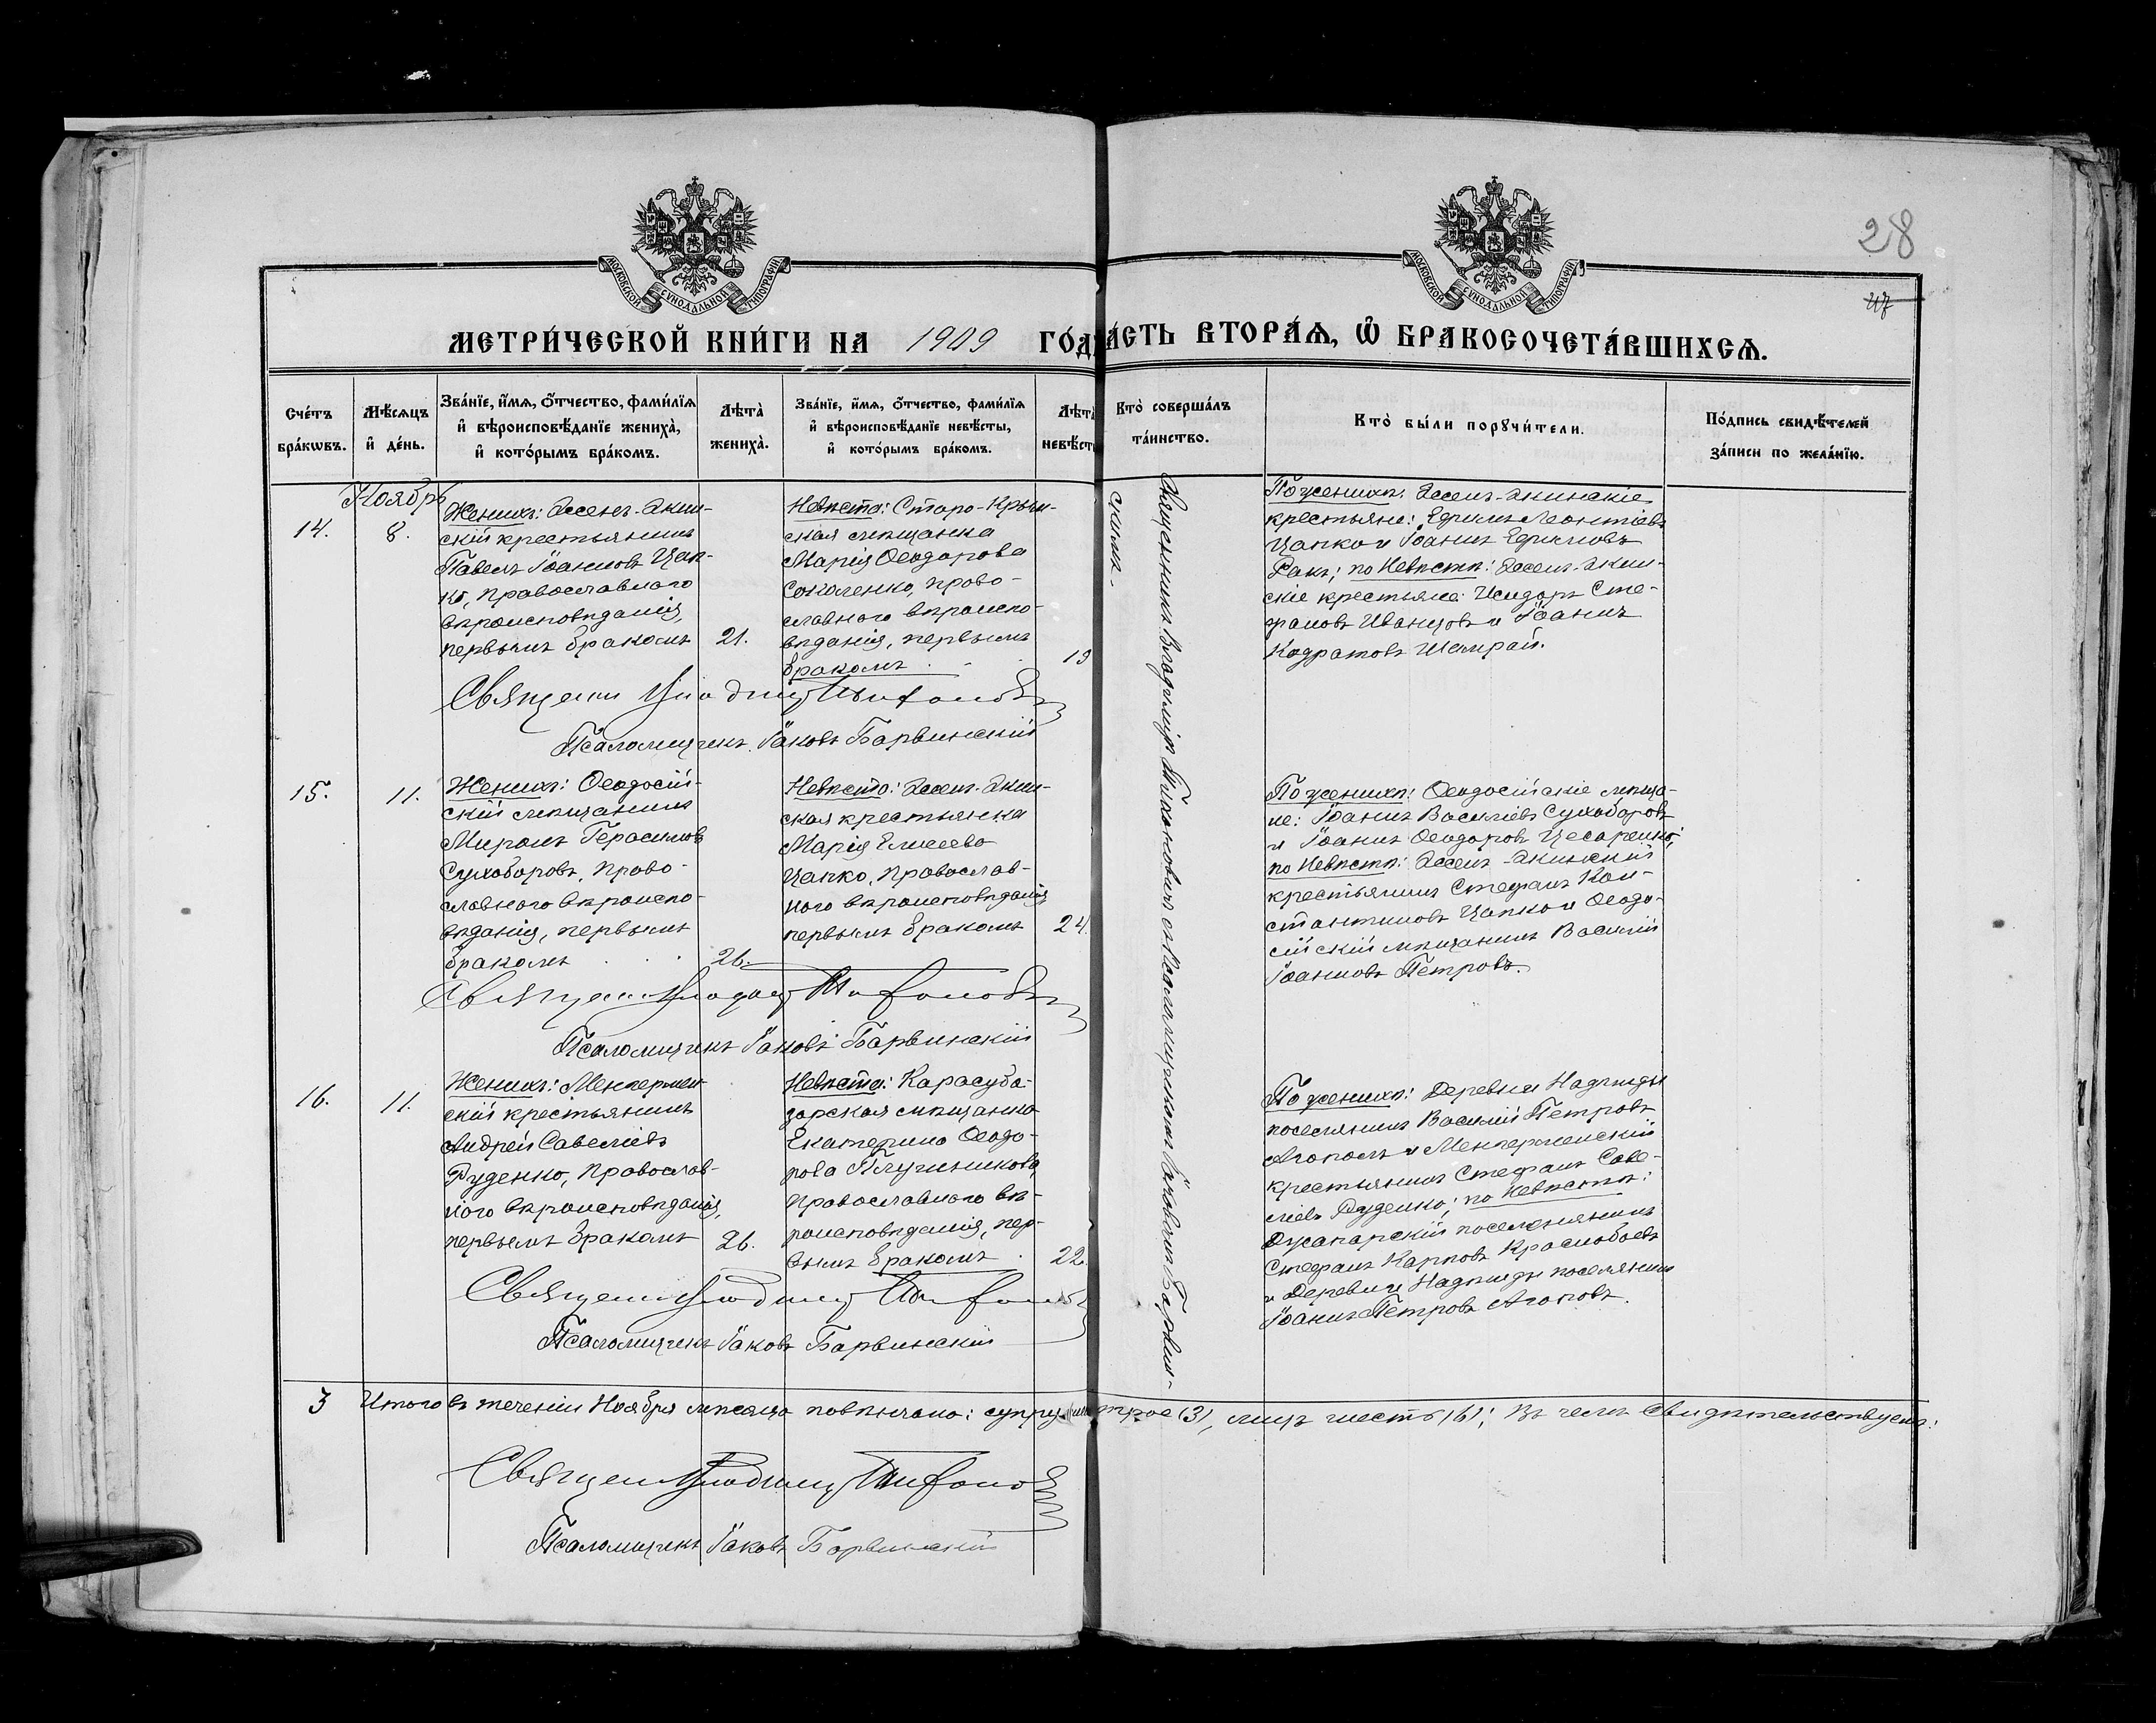 28
47
МОСКОВСКОЙ СѴНОДАЛЬНОЙ ТИПОГРАФІИ
МОСКОВСКОЙ СѴНОДАЛЬНОЙ ТИПОГРАФІИ
МЕТРИ́ЧЕСКОЙ КНИ́ГИ НА 1909 ГО́Д
А́СТЬ ВТОРА́Ѧ, Ѡ҆ БРАКОСОЧЕТА́ВШИХСѦ.
Сче́тъ бра́кѡвъ.
Мѣ́сяцъ и҆ де́нь.
Зва́нїе, и҆́мѧ, ѻ҆́тчество, фами́лїѧ
и҆ вѣроисповѣ́данїе жениха̀,
и҆ кото́рымъ бра́комъ.
Лѣта̀ жениха̀.
Зва́нїе, и҆́мѧ, ѻ҆́тчество, фами́лїѧ
и҆ вѣроисповѣ́данїе невѣ́сты,
и҆ кото́рымъ бра́комъ.
Лѣта̀ невѣ́сты
Кто̀ соверша́лъ та́инство.
Кто̀ бы́ли порꙋчи́тели.
По́дпись свидѣ́телей за́писи по жела́нїю.
Ноябрь
14.
8.
Женихъ: Ассенъ-Акин-
скій крестьянинъ
Павелъ Іоанновъ Цап-
ко, православнаго
вѣроисповѣданія,
первымъ бракомъ
21.
Невѣста: Старо-Крым-
ская мѣщанка
Марія Ѳеодорова
Соколенко, право-
славнаго вѣроиспо-
вѣданія, первымъ
бракомъ
19
Священникъ Владиміръ Тихоновичъ съ Псаломщикомъ Іаковомъ Барвин-
скимъ.
По женихѣ: Ассенъ-Акинскіе
крестьяне: Ефимъ Леонтіевъ
Цапко и Іоаннъ Ефимовъ
Ракъ; по Невѣстѣ: Ассенъ-Акин-
скіе крестьяне: Исидоръ Сте-
фановъ Иванцовъ и Іоаннъ
Кодратовъ Шамрай.
Священ Владимір Тихонов
Псаломщикъ Іаковъ Барвинскій
15.
11.
Женихъ: Ѳеодосій-
скій мѣщанинъ
Миронъ Герасимовъ
Сухоборовъ, право-
славнаго вѣроиспо-
вѣданія, первымъ
бракомъ
26.
Невѣста: Ассенъ-Акин-
ская крестьянка
Марія Елисеева
Цапко, православ-
наго вѣроисповѣданія
первымъ бракомъ
24.
По женихѣ: Ѳеодосійскіе мѣща-
не: Іоаннъ Василіевъ Сухоборовъ
и Іоаннъ Ѳеодоровъ Цесаренко;
по Невѣстѣ: Ассенъ-Акинскій
крестьянинъ Стефанъ Кон-
стантиновъ Цапко и Ѳеодо-
сійскій мѣщанинъ Василій
Іоанновъ Петровъ.
Священ Владимір Тихоновъ
Псаломщикъ Іаковъ Барвинскій
16.
11.
Женихъ: Менгермен-
скій крестьянинъ
Андрей Савеліевъ
Руденко, православ-
наго вѣроисповѣданія,
первымъ бракомъ
26.
Невѣста: Карасуба-
зарская мѣщанка
Екатерина Ѳеодо-
рова Плужникова,
православнаго вѣ-
роисповѣданія, пер-
вымъ бракомъ
22.
По женихѣ: Деревни Надежды
поселянинъ Василій Петровъ
Агоповъ и Менгерменскій
крестьянинъ Стефанъ Саве-
ліевъ Руденко; по Невѣстѣ:
Джапарскій поселянинъ
Стефанъ Карповъ Краснобаевъ
и Деревни Надежды поселянинъ
Іоаннъ Петровъ Агоповъ.
Священ Владимір Тихонов
Псаломщикъ Іаковъ Барвинскій
3 Итого въ теченіи Ноября мѣсяца повѣнчано: супру трое (3), лицъ шесть (6); Въ чемъ свидѣтельствуемъ:
Священ Владимір Тихонов
Псаломщикъ Іаковъ Барвинскій